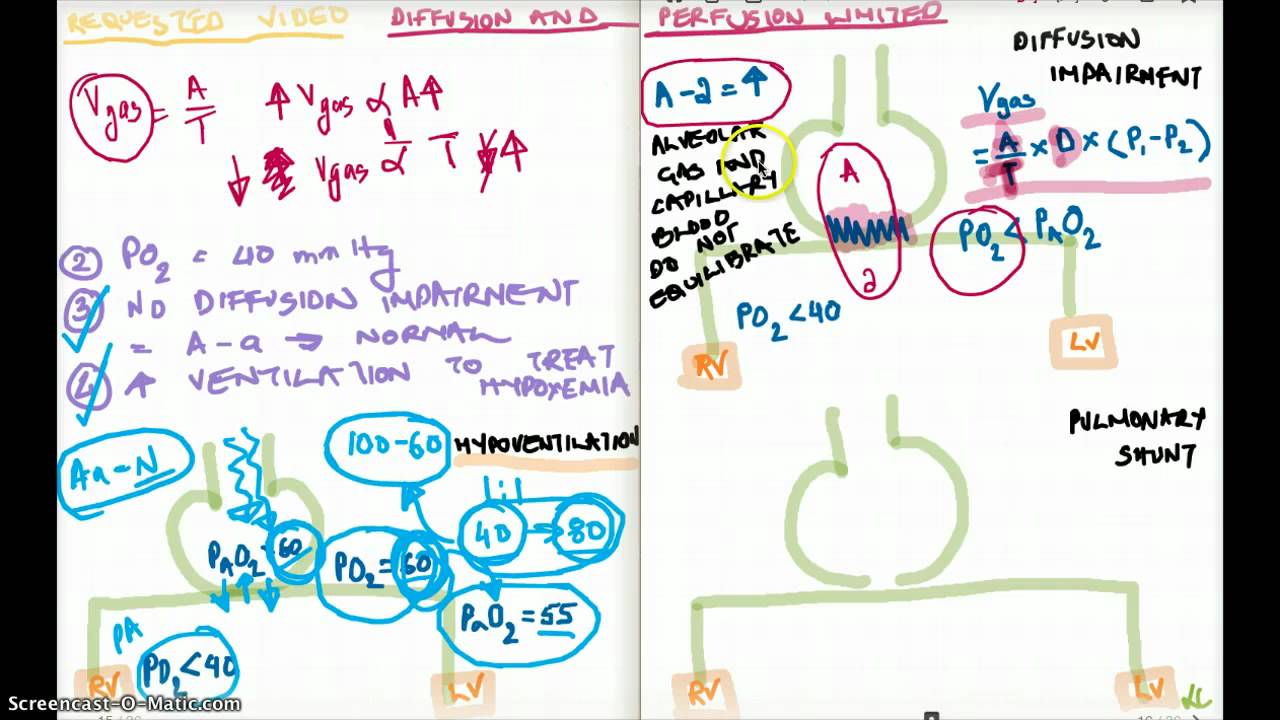 REQUESTED VIDEO
DIFFUSION AND
PERFUSION LIMITED
Vgas = A/T
↑ Vgas ∝ A↑
↓ Vgas ∝ 1/T ↑
② PO2 = 40 mm Hg
③ NO DIFFUSION IMPAIRMENT
= A-a → NORMAL
④ ↑ VENTILATION TO TREAT
HYPOXEMIA
Aa-N
100-60
HYPOVENTILATION
40 → 80
PAO2 = 60
PO2 = 60
PaO2 = 55
PA
PO2 < 40
RV
LV
DIFFUSION
IMPAIRMENT
A-a = ↑
ALVEOLAR
GAS AND
CAPILLARY
BLOOD
DO NOT
EQUILIBRATE
Vgas
= A/T × D × (P1-P2)
A
a
PO2 < PAO2
PO2 < 40
RV
LV
PULMONARY
SHUNT
RV
LV
Screencast-O-Matic.com